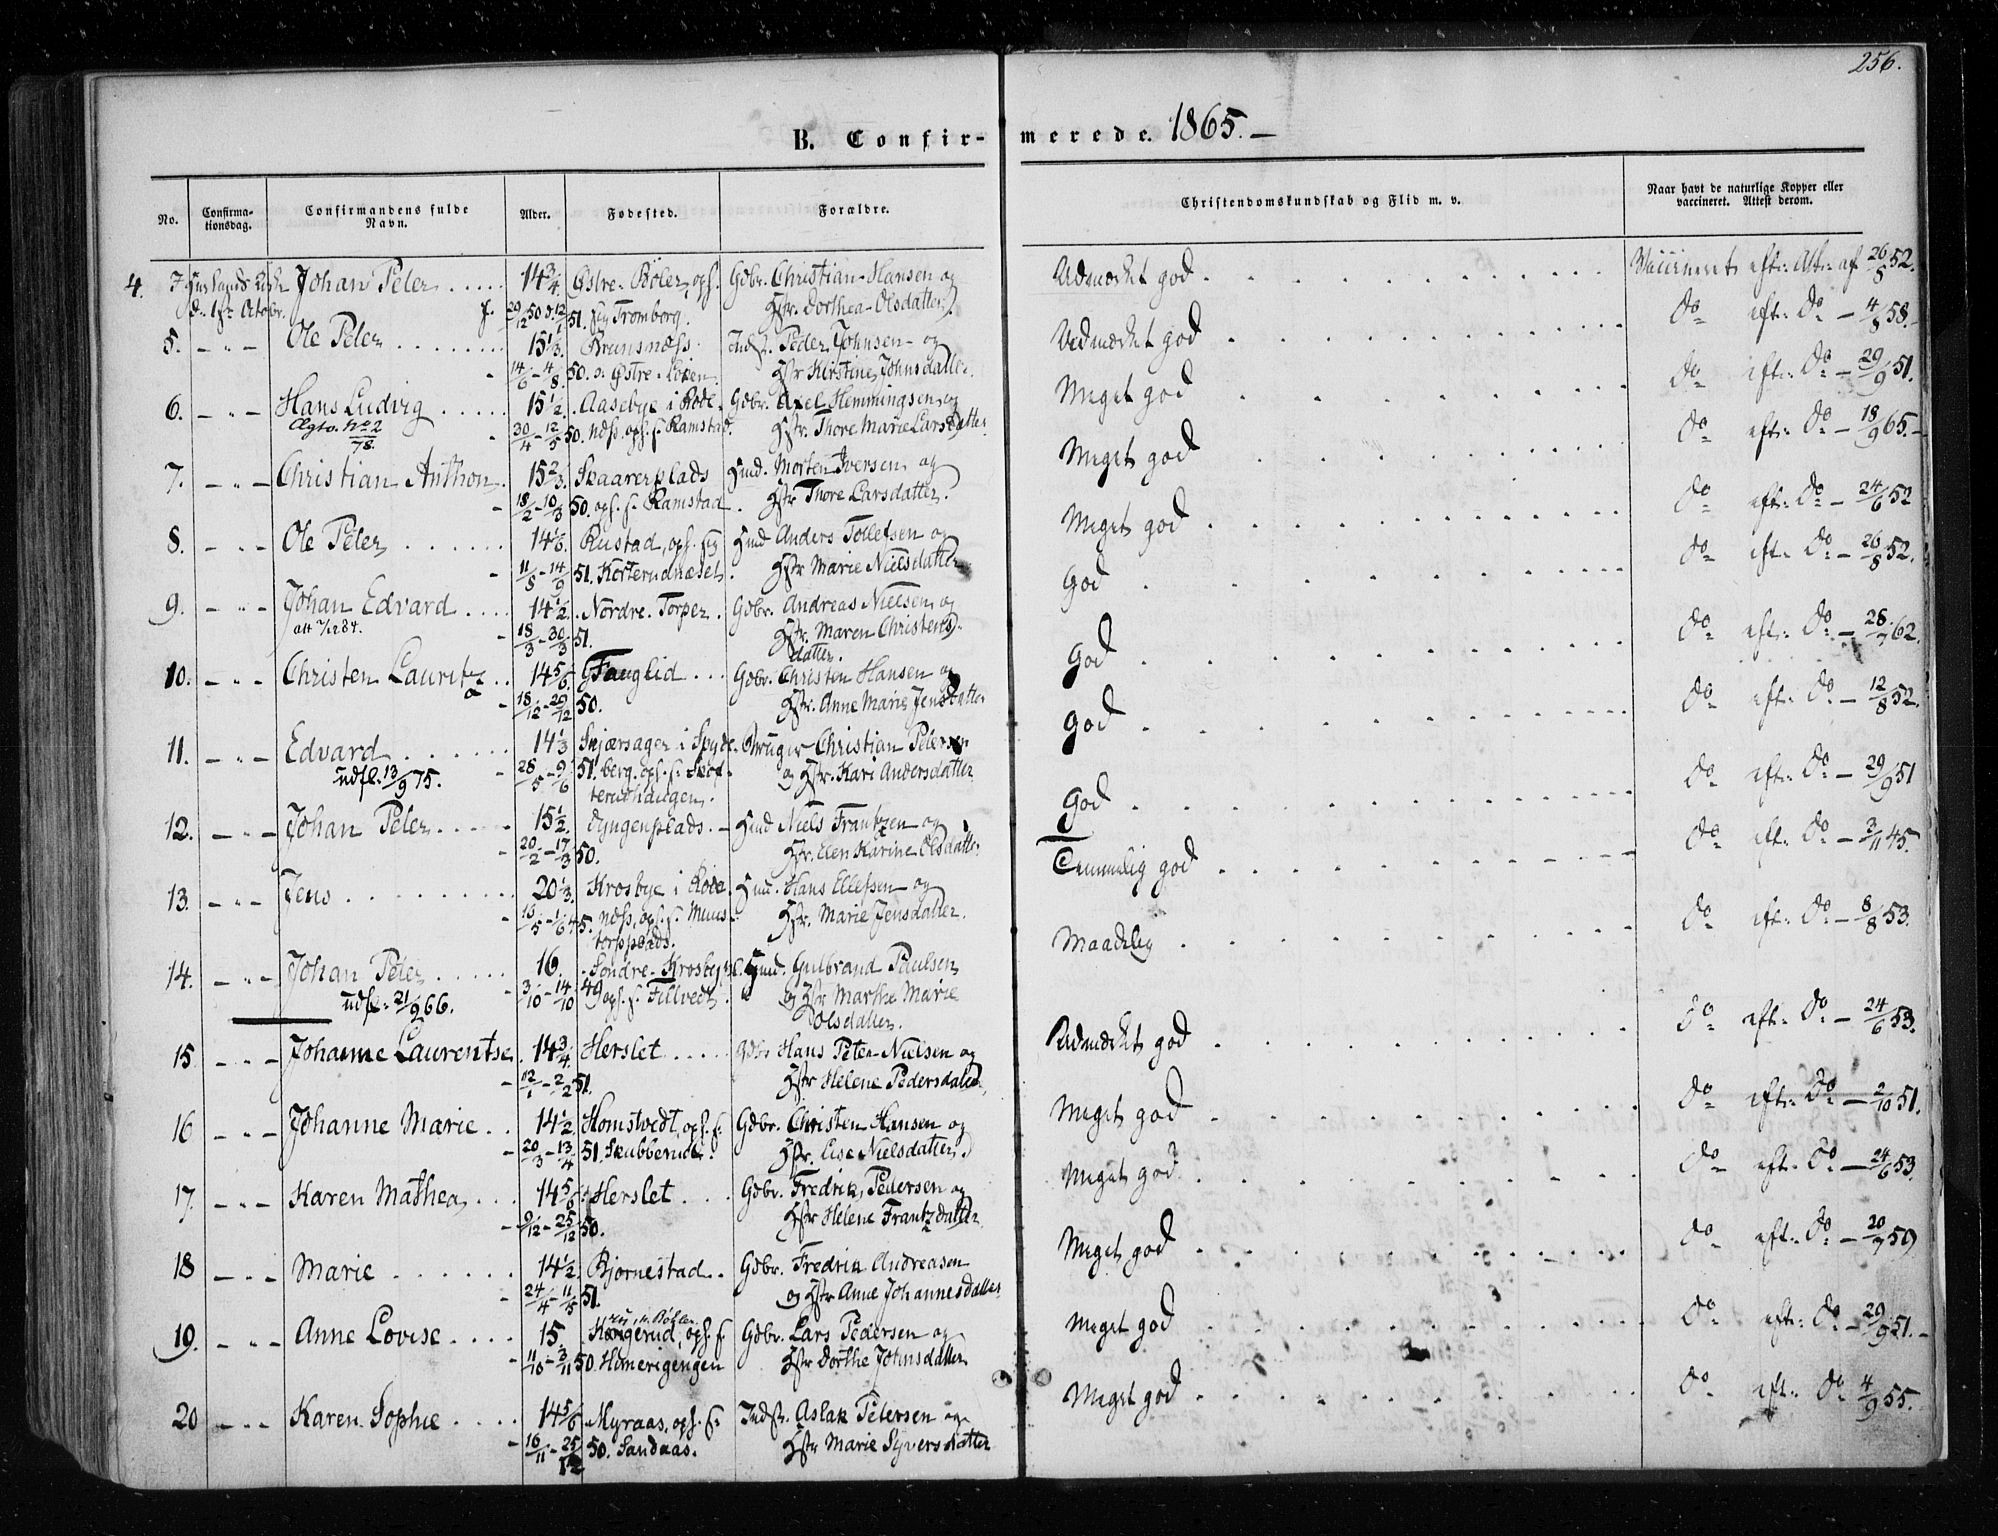 256.
B. Confirmerede. 1865.
No. Confirmationsdag. Confirmandens fulde Navn. Alder. Fødested. Forældre. Christendomskundskab og Flid m. v. Naar havt de naturlige Kopper eller vaccineret. Attest derom.
4. Johan Peter 14 3/4 Østre-Bøler, ops. Gdbr. Christian Hansen og Udmærket god Vaccineret eft: Att: af 26/8 52.
d: 1ste Octobr. f. 29/12 50 d. 12/1 51. Tromborg. Hstr. Dorthea Olsdatter.
5. — " — Ole Peter 15 1/3. Brunsnæss Indst. Peder Johnsen og Udmærket god Do eft: Do — 4/8 58.
14/6 - 4/8 50. Østre Hstr Kirstine Johnsdatter.
6. — " — Hans Ludvig 15 1/2. Aasebye i Rode- Gdbr. Axel Hemmingsen og Meget god Do eft: Do — 29/9 51.
No 2/78. 30/4 - 12/5 50. næss, ops. f. Ramstad. Hstr. Thore Marie Larsdatter
7. — " — Christian Anthon 15 2/3. Skaarerplads Hmd. Morten Iversen og Meget god Do eft: Do — 18/9 65.
18/2 - 10/3 50. ops. f. Ramstad. Hstr Thore Larsdatter.
8. — " — Ole Peter 14 1/6. Rustad, ops. Hmd Anders Tollefsen og Meget god Do eft: Do — 24/6 52
11/8 - 14/9 51. Kosterudnæset. Hstr Marie Nielsdatter
9. — " — Johan Edvard 14 1/2. Nordre-Torper. Gdbr. Andreas Nielsen og God Do eft: Do — 26/8 52.
att 7/12 84. 18/3 - 30/3 51. Hstr. Maren Christens-
datter.
10. — " — Christen Lauritz 14 5/6. Fauglid Gdbr. Christen Hansen og God Do eft: Do — 28/7 62.
18/12 - 29/12 50. Hstr. Anne Marie Jensdatter
11. — " — Edvard 14 1/3 Skjærsager i Spyde- Bruger Christian Petersen God Do eft: Do — 12/8 52.
udfl. 13/9 75. 28/5 - 9/6 51. berg, ops. f. Skof- og Hstr. Kari Andersdatter
terudhaugen.
12. — " — Johan Peter 15 1/2. Dyngenplads. Hmd Niels Frantzen og God Do eft: Do — 29/9 51
20/2 - 17/3 50. Hstr. Elen Karine Olsdatter.
13. — " — Jens 20 1/3. Krosbye i Rode- Hmd. Hans Ellefsen og Temmelig god Do eft: Do — 3/11 45.
16/5 - 1/6 45. næss, ops. f. Muus- Hstr. Marie Jensdatter.
torpplads.
14. — " — Johan Peter 16. Søndre-Krosbye Hmd. Gulbrand Paulsen Maadelig Do eft: Do — 8/8 53.
udfl. 21/9 66. 3/10 - 14/10 49 ops. f. Tillvedt. og Hstr Marthe Marie
Olsdatter.
15 — " — Johanne Laurentse 14 3/4 Herslet Gdbr Hans Peter Nielsen og Udmærket god Do eft: Do — 24/6 53.
12/1 - 2/2 51. Hstr Helene Pedersdatter.
16 — " — Johanne Marie 14 1/2 Homstvedt, ops. f. Gdbr. Christen Hansen og Meget god Do eft: Do — 2/10 51.
20/3 - 13/4 51. Skubberud. Hstr. Lise Nielsdatter.
17. — " — Karen Mathea 14 5/6 Herslet Gdbr. Fredrik Pedersen og Meget god Do eft: Do — 24/6 53.
9/12 - 25/12 50. Hstr Helene Frantzdatter.
18 — " — Marie 14 1/2. Bjørnestad Gdbr. Fredrik Andreasen Meget god Do eft: Do — 20/7 59
24/4 - 11/5 51. og Hstr Anne Johannesdatter
19. — " — Anne Lovise 15. Kongerud, ops. f. Gdbr. Lars Pedersen og Meget god Do eft: Do — 29/9 51.
11/10 - 3/11 50. Himerigengen Hstr Dorthe Johnsdatter
20 — " — Karen Sophie 14 5/6 Myraas, ops. f. Indst. Aslak Petersen og Meget god Do eft: Do 4/9 55.
16/11 - 25/12 50. Sandaas. Hstr Marie Syversdatter